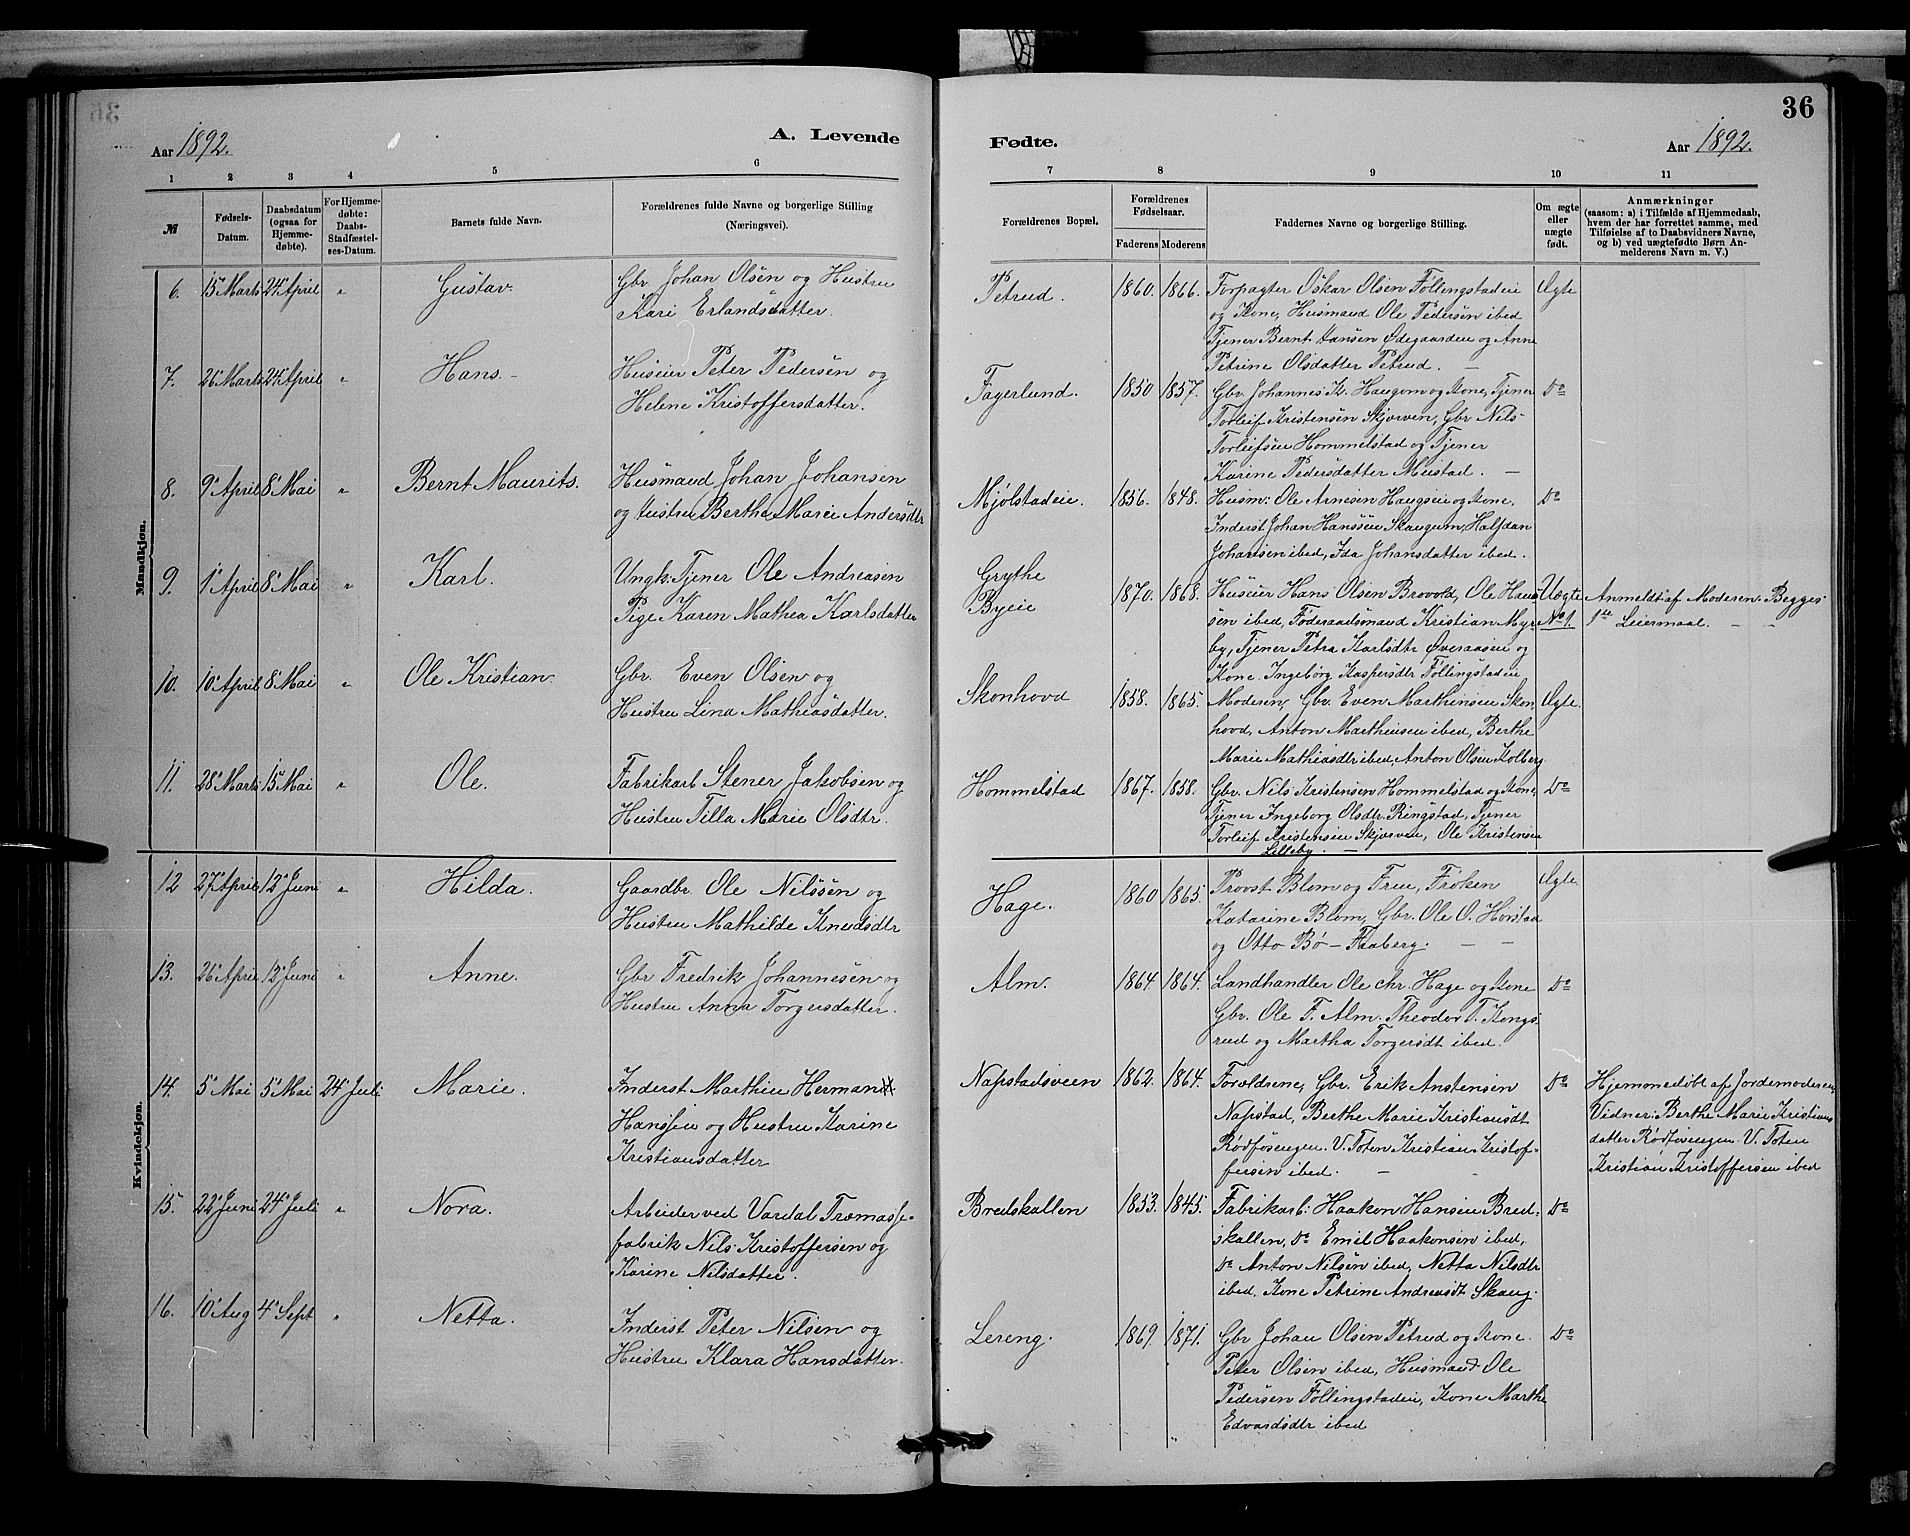 36
Aar 1892.
A. Levende
Fødte.
Aar 1892.
1 2 3 4 5 6
7 8 9 10 11
№
Fødsels-
Datum.
Daabsdatum
(ogsaa for
Hjemme-
døbte).
For Hjemme-
døbte:
Daabs-
Stadfæstel-
ses-Datum.
Barnets fulde Navn.
Forældrenes fulde Navne og borgerlige Stilling
(Næringsvei).
Forældrenes Bopæl.
Forældrenes
Fødselsaar.
Faderens Moderens
Faddernes Navne og borgerlige Stilling.
Om ægte
eller
uægte
født.
Anmærkninger
(saasom: a) i Tilfælde af Hjemmedaab,
hvem der har forrettet samme, med
Tilføielse af to Daabsvidners Navne,
og b) ved uægtefødte Børn An-
melderens Navn m. V.)
Mandkjøn.
6. 15 Marts 24 April " Gustav. Gbr. Johan Olsen og Hustru
Kari Erlandsdatter.
Petrud. 1860. 1866. Forpagter Oskar Olsen Föllingstadeie Ægte
og Kone, Husmand Ole Pedersen ibed
Tjener Bernt Hansen Ødegaarden og Anne
Petrine Olsdatter Petrud. —
7. 26 Marts 24 April " Hans. Huseier Peter Pedersen og
Helene Kristoffersdatter.
Fagerlund. 1850 1857. Gbr. Johannes K. Haugom og Kone, Tjener Do
Torleif Kristensen Skjerven, Gbr Nils
Torleifsen Hommelstad og Tjener
Karine Pedersdatter Mustad. —
8. 9 April 8 Mai " Bernt Maurits. Husmand Johan Johansen
og Hustru Bertha Marie Andersdtr
Mjölstadeie. 1856. 1848. Husm: Ole Arnesen Haugseie og Kone. Do
Inderst Johan Hanssen Skaugum, Halfdan
Johansen ibed, Ida Johansdatter ibed.
9. 1 April 8 Mai " Karl. Ungk: Tjener Ole Andreasen
Pige Karen Mathea Karlsdatter
Grythe
Byeie 1870. 1868. Huseier Hans Olsen Brovold, Ole Han- Uægte Anmeldt af Moderen. Begges
sen ibed, Föderaadsmand Kristian Myr- No 1. 1ste Leiermaal. — —
by, Tjener Petra Karlsdtr Øveraasen og
Kone Ingeborg Kaspersdtr Föllingstadeie
10. 10 April 8 Mai " Ole Kristian. Gbr. Even Olsen og
Hustru Lina Mathiasdatter.
Skonhovd 1858. 1865. Moderen, Gbr. Even Marthinsen Skon- Ægte.
hovd, Anton Marthinsen ibed, Berthe
Marie Mathiasdtr ibed Anton Olsen Kolberg.
11. 28 Marts 15 Mai " Ole. Fabrikarb Stener Jakobsen og
Hustru Tilla Marie Olsdtr.
Hommelstad 1867. 1858. Gbr. Nils Kristensen Hommelstad og Kone, Do
Tjener Ingeborg Olsdtr. Ringstad, Tjener
Torleif Kristensen Skjerven, Ole Kristensen
Lilleby. —
Kvindekjøn.
12 27 April 12 Juni " Hilda. Gaardbr Ole Nilssen og
Hustru Mathilde Knudsdtr
Hage. 1860 1865. Provst Blom og Frue, Fröken Ægte
Katarine Blom, Gbr. Ole O. Horstad
og Otto Bö — Faaberg. — —
13. 26 April 12 Juni " Anne. Gbr Fredrik Johannesen og
Hustru Anna Torgersdatter.
Alm. 1864 1864. Landhandler Ole Chr. Hage og Kone Do
Gbr. Ole F. Alm. Theodor T. Kongs-
rud og Martha Torgersdt ibed.
14. 5 Mai 5 Mai 24 Juli Marie. Inderst Marthin Herman
Hanssen og Hustru Karine
Kristiansdatter
Napstadsveen 1862. 1864. Forældrene, Gbr. Erik Anstensen Do Hjemmedöbt af Jordemoderen,
Napstad, Berthe Marie Kristiansdt Vidner: Berthe Marie Kristians
Rødfosengen. V. Toten Kristian Kristof- datter Rødfosengen. V. Toten
fersen ibed. — Kristian Kristoffersen ibed
15. 22 Juni 24 Juli " Nora. Arbeider ved Vardal Træmasse-
fabrik Nils Kristoffersen og
Karine Nilsdatter.
Bredskallen 1853. 1845. Fabrikarb: Haakon Hansen Bred- Do
skallen, Do Emil Haakonsen ibed,
Do Anton Nilsen ibed, Netta Nilsdtr
ibed, Kone Petrine Andreasdt Skaug.
16. 10 Aug 4 Sept " Netta. Inderst Peter Nilsen og
Hustru Klara Hansdatter.
Lereng. 1869. 1871. Gbr Johan Olsen Petrud og Kone. Do
Peter Olsen ibed, Husmand Ole
Pedersen Föllingstadeie, Kone Marthe
Edvardsdtr ibed